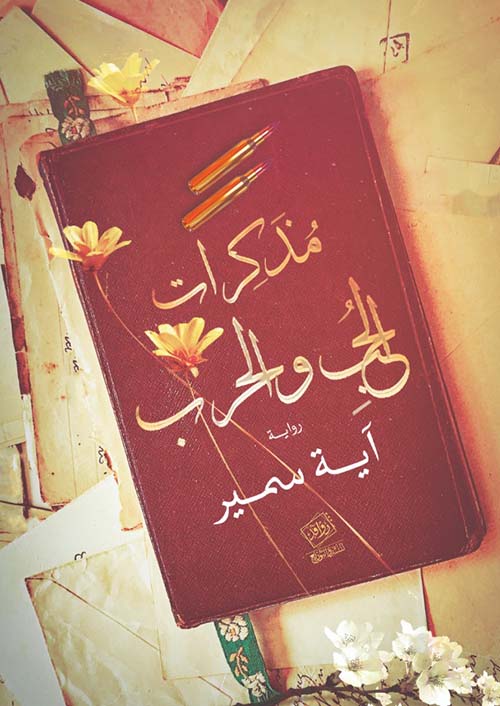 مُذَكِرات
الحُبِ والحرب
رواية
آية سمير